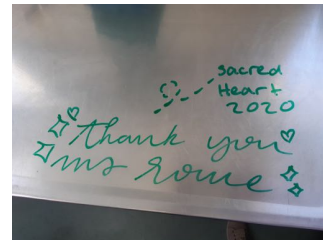 sacred
Heart
2020
thank you
ms rome